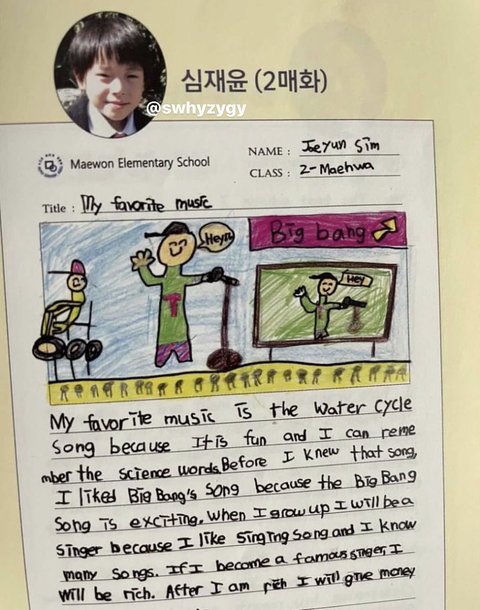 심재윤 (2매화)
@swhyzygy
Maewon Elementary School
NAME : Jaeyun Sim
CLASS : 2-Maehwa
Title : My favorite music
Hey!!
Big bang
Hey
T
My favorite music is the Water Cycle
Song because It is fun and I can reme
mber the science words. Before I knew that song,
I liked Big Bang's song because the Big Bang
Song is exciting. When I grow up I will be a
singer because I like singing song and I know
many songs. If I become a famous singer, I
will be rich. After I am rich I will give money